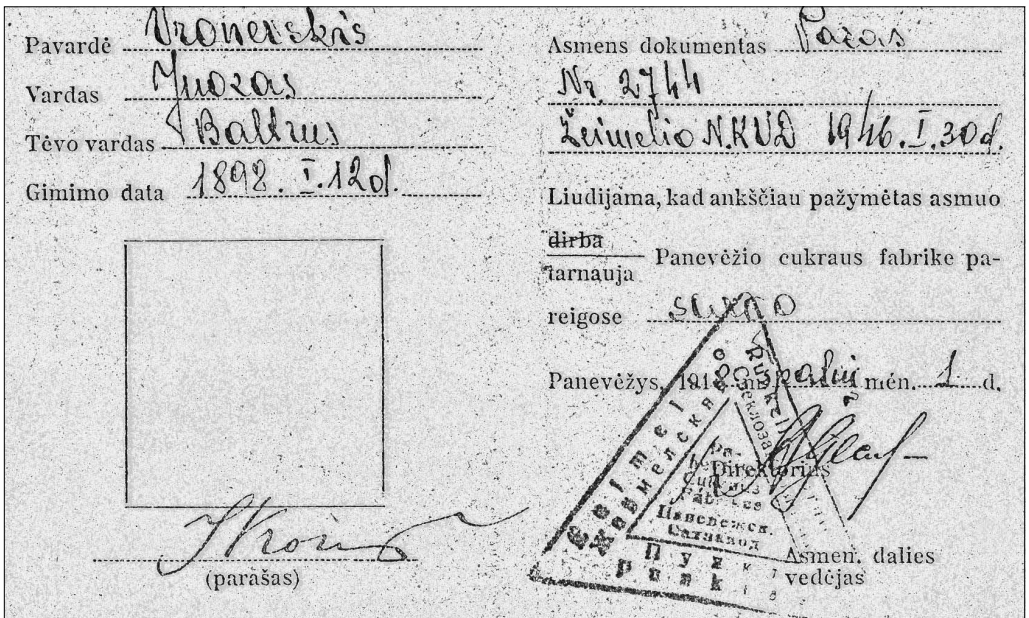 Pavardė Vronevskis
Vardas Juozas
Tėvo vardas Baltrus
Gimimo data 1898. I. 12 d.
(parašas)
Asmens dokumentas Pasas
Nr. 2744
Žeimelio N.K.V.D 1946. I. 30 d.
Liudijama, kad ankščiau pažymėtas asmuo
dirba
tarnauja
Panevėžio cukraus fabrike pa-
reigose sargo
Panevėžys, 194 m. spalių mėn. 1 d.
Direktorius
Asmen. dalies
vedėjas
Žeimelio
Жеймелский
Cukraus
Fabrikas
Паневежск.
Сахзавод
Пунк
punk